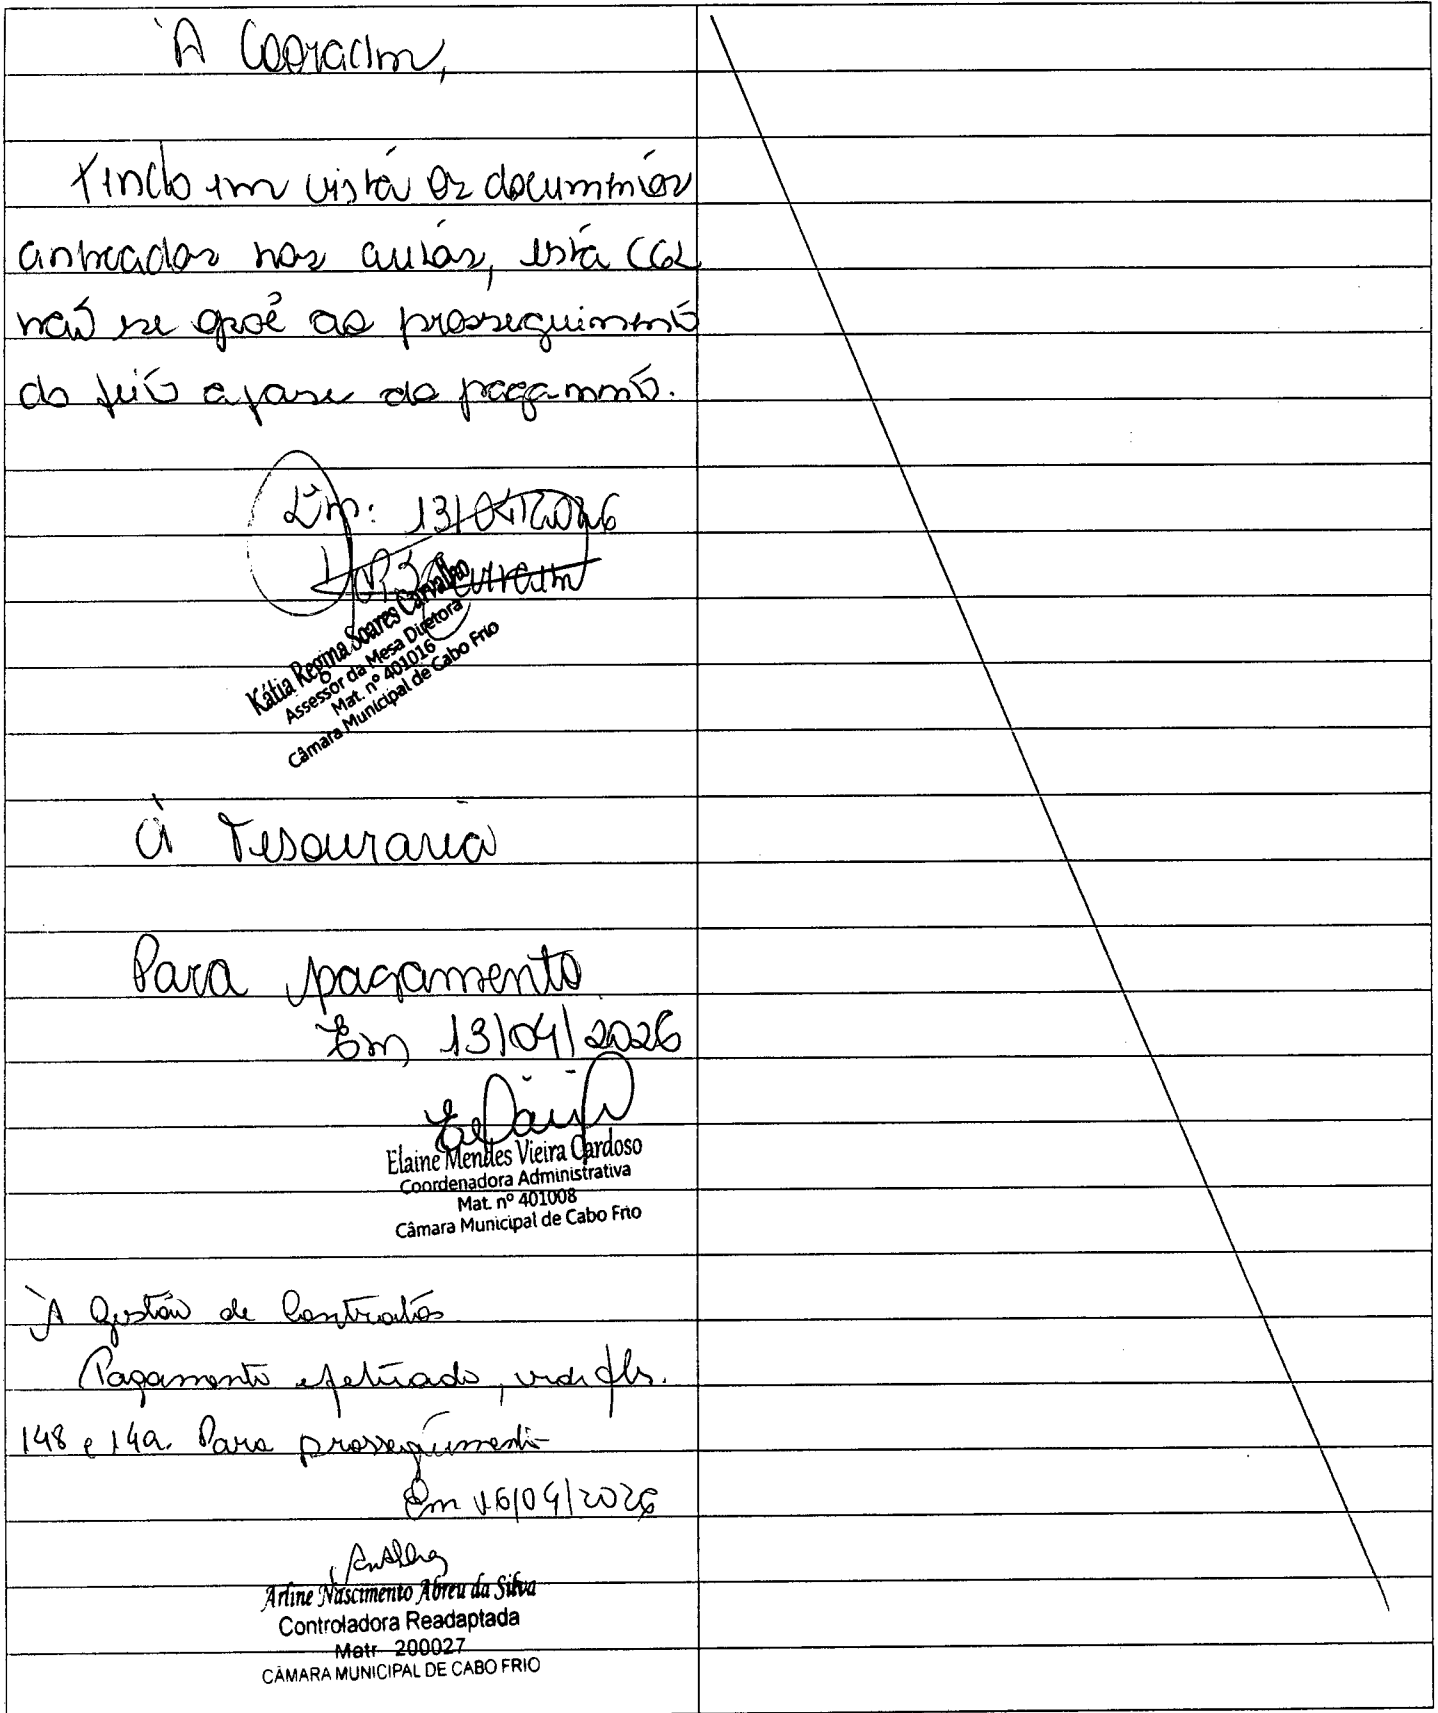 À Cooradm,
Tendo em vista os documentos
anexados nos autos, esta CGL
não se opõe ao prosseguimento
do feito a fase de pagamento.
Em: 13/04/2026
Kátia Regina Soares Carvalho
Assessor da Mesa Diretora
Mat. nº 401016
Câmara Municipal de Cabo Frio
À Tesouraria
Para pagamento
Em 13/04/2026
Elaine Mendes Vieira Cardoso
Coordenadora Administrativa
Mat. nº 401008
Câmara Municipal de Cabo Frio
À Gestão de Contratos
Pagamento efetuado, vide fls.
148 e 149. Para prosseguimento
Em 16/04/2026
Arline Nascimento Abreu da Silva
Controladora Readaptada
Matr 200027
CÂMARA MUNICIPAL DE CABO FRIO